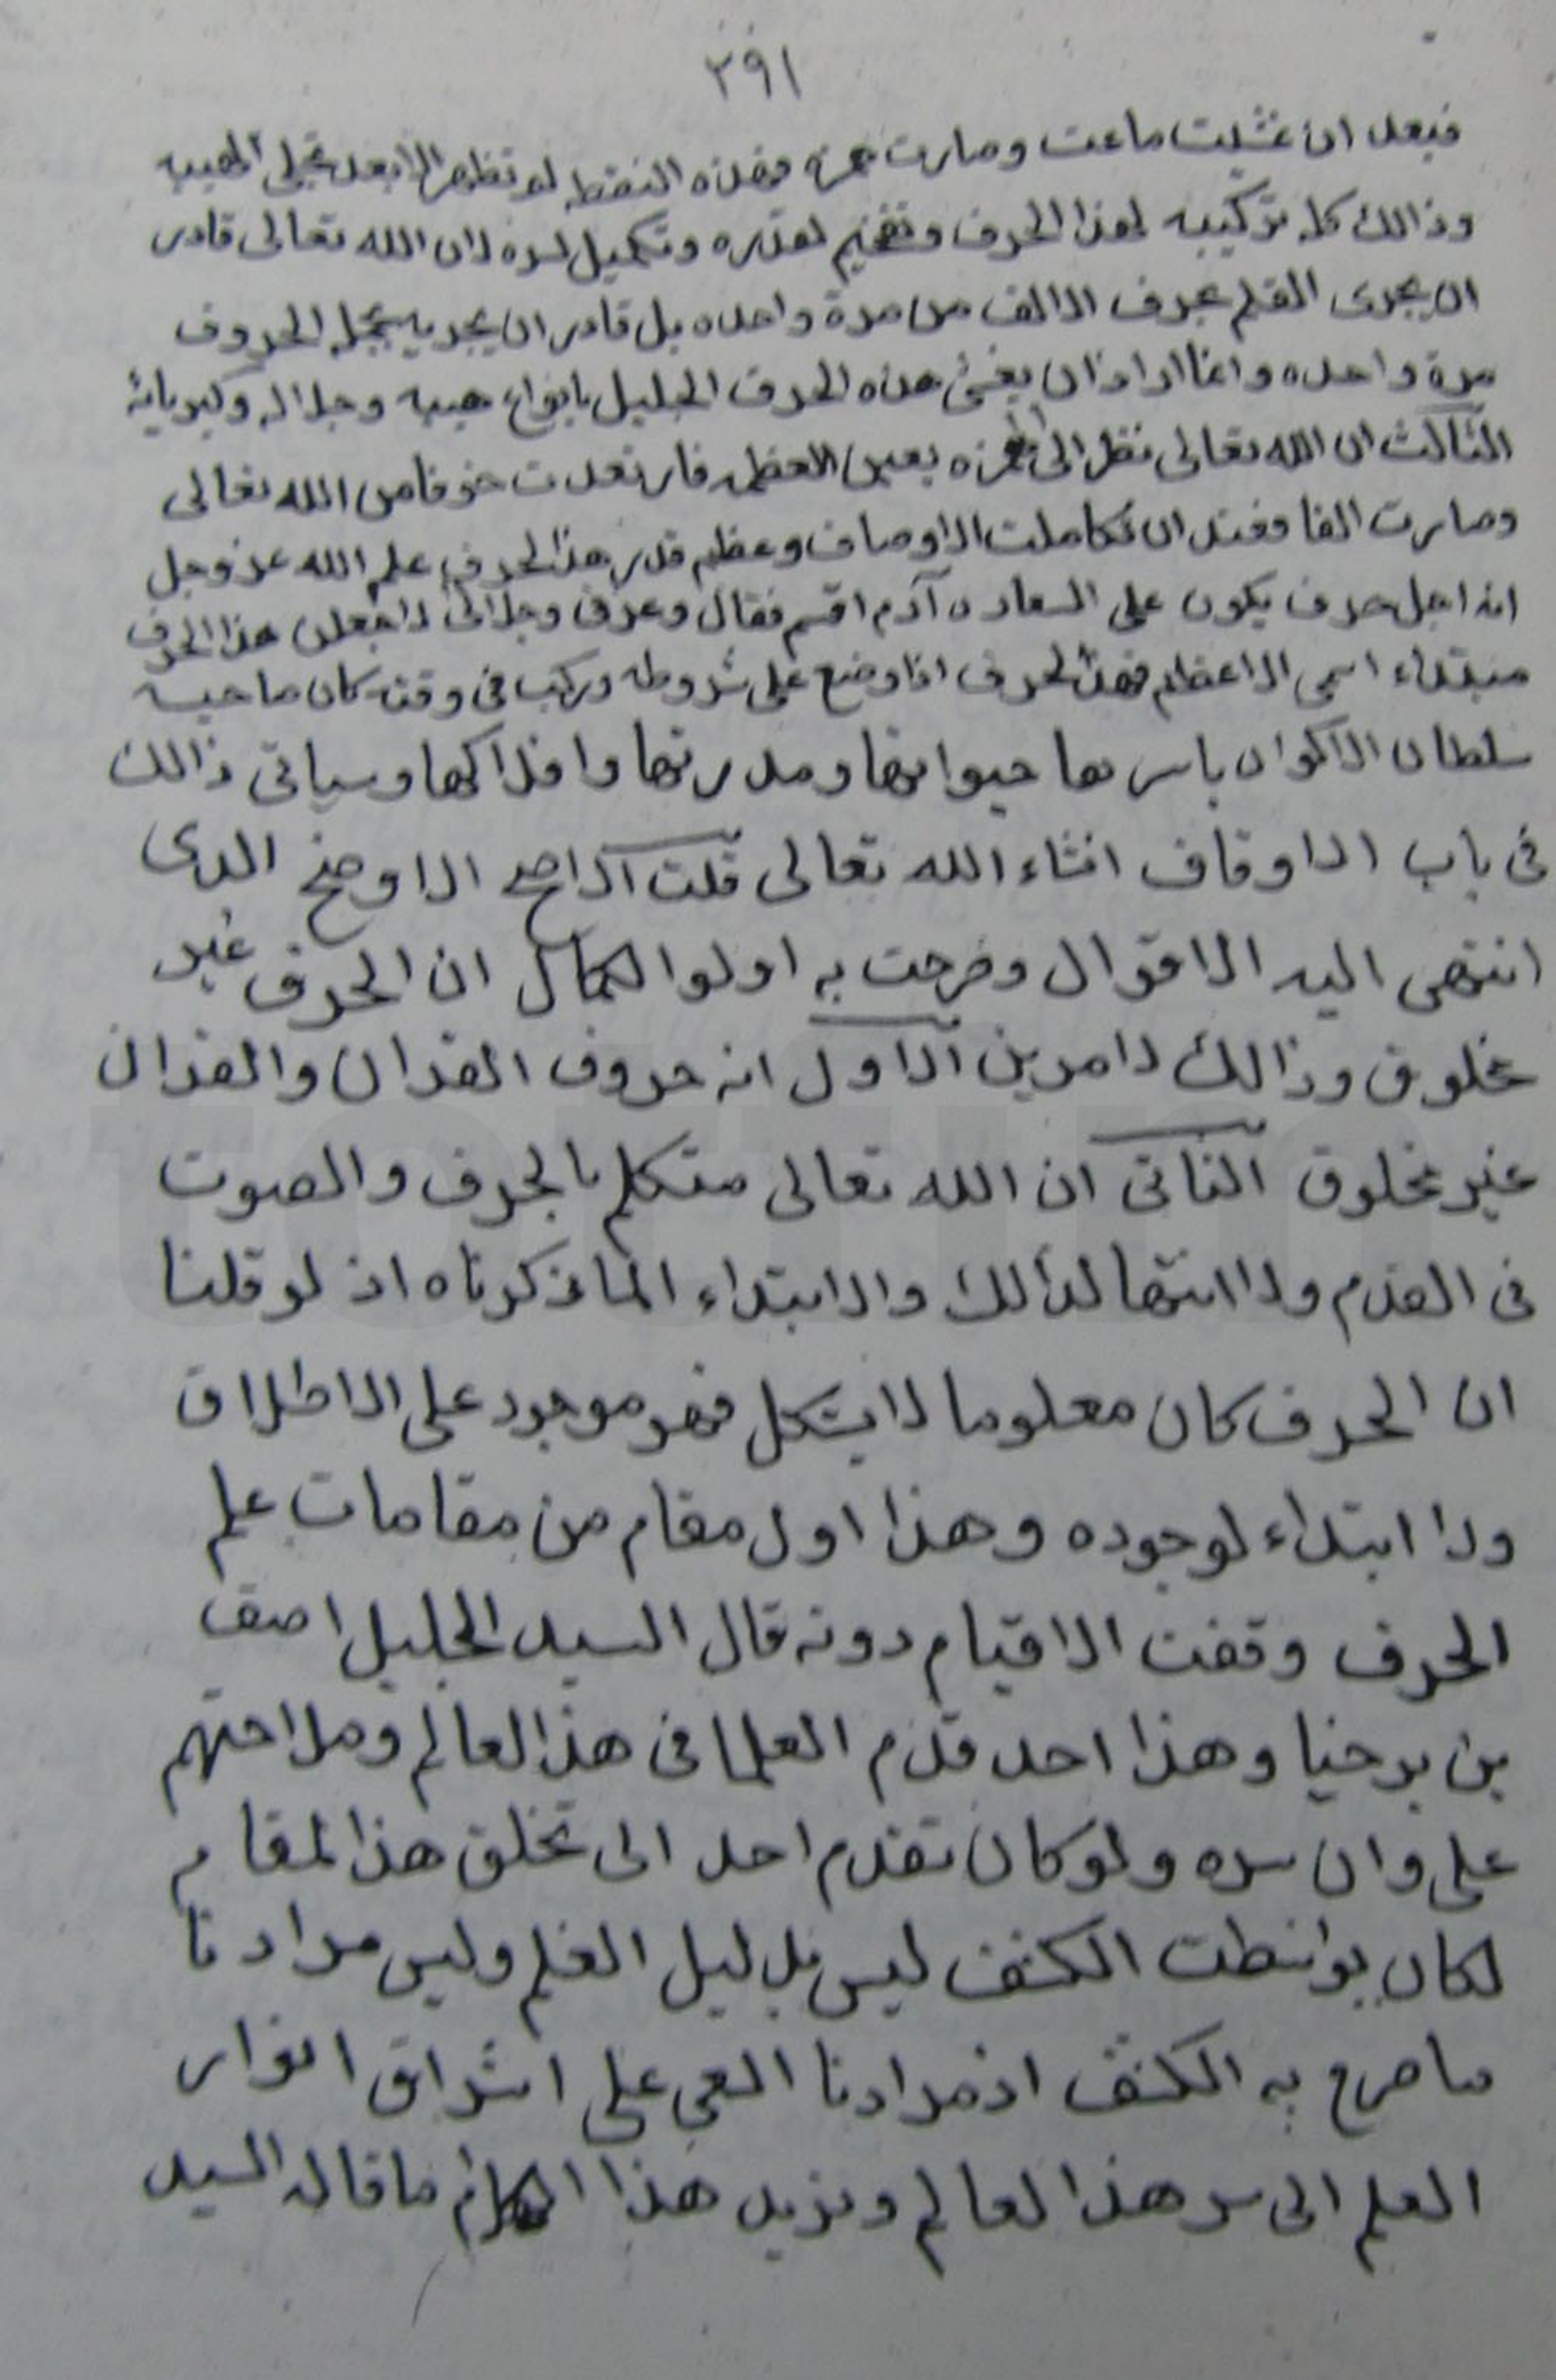 ٢٩١
فبعد ان تمثلت ماعت وصارت همزه وهذه النقطه لم تظهر الا بعد تجلى الهيبه
وذالك كله تركيبه لهذا الحرف وتفخيم لقدره وتكميل لسره لان الله تعالى قادر
ان يجرى القلم بحرف الالف من مرة واحده بل قادر ان يجريه بجملة الحروف
مرة واحده وانما اراد ان هذه الحرف الجليل بانواع هيبه وجلاله وكبريائه
الثالث ان الله تعالى نظر الى الهمزه بعين العظمه فارتعدت خوفا من الله تعالى
وصارت الفا فعند ان تكاملت الاوصاف وعظم قدر هذا الحرف علم الله عز وجل
انه اجل حرف يكون على السعاده آدم اقسم فقال وعزتى وجلالى لاجعلن هذا الحرف
مبتداء اسمى الاعظم فهذا الحرف اذا وضع على شروطه وركب فى وقته كان صاحبه
سلطان الاكوان باسرها حيوانها ومدرتها وافلاكها وسياتى ذالك
فى باب الاوقاف انشاء الله تعالى قلت الاصح الاوضح الدى
انتهى اليه الاقوال وصرحت به اولوا الكمال ان الحرف غير
مخلوق وذالك لامرين الاول انه حروف القران والقران
غير مخلوق الثانى ان الله تعالى متكلم بالحرف والصوت
فى القدم ولا انتها لذالك والابتداء لما ذكرناه اذ لو قلنا
ان الحرف كان معلوما لا يشكل فهو موجود على الاطلاق
ولا ابتداء لوجوده وهذا اول مقام من مقامات علم
الحرف وقفت الاقيام دونه قال السيد الجليل اصف
بن برخيا وهذا احد قدم العلما فى هذا العالم وملاحتهم
على وان سره ولو كان تقدم احد الى تخلق هذا المقام
لكان بواسطت الكشف ليس بدليل العلم وليس مرادنا
ما صرح به الكشف اذ مرادنا العى على اشراق انوار
العلم الى سر هذا العالم ونزيد هذا الكلام ما قاله السيد